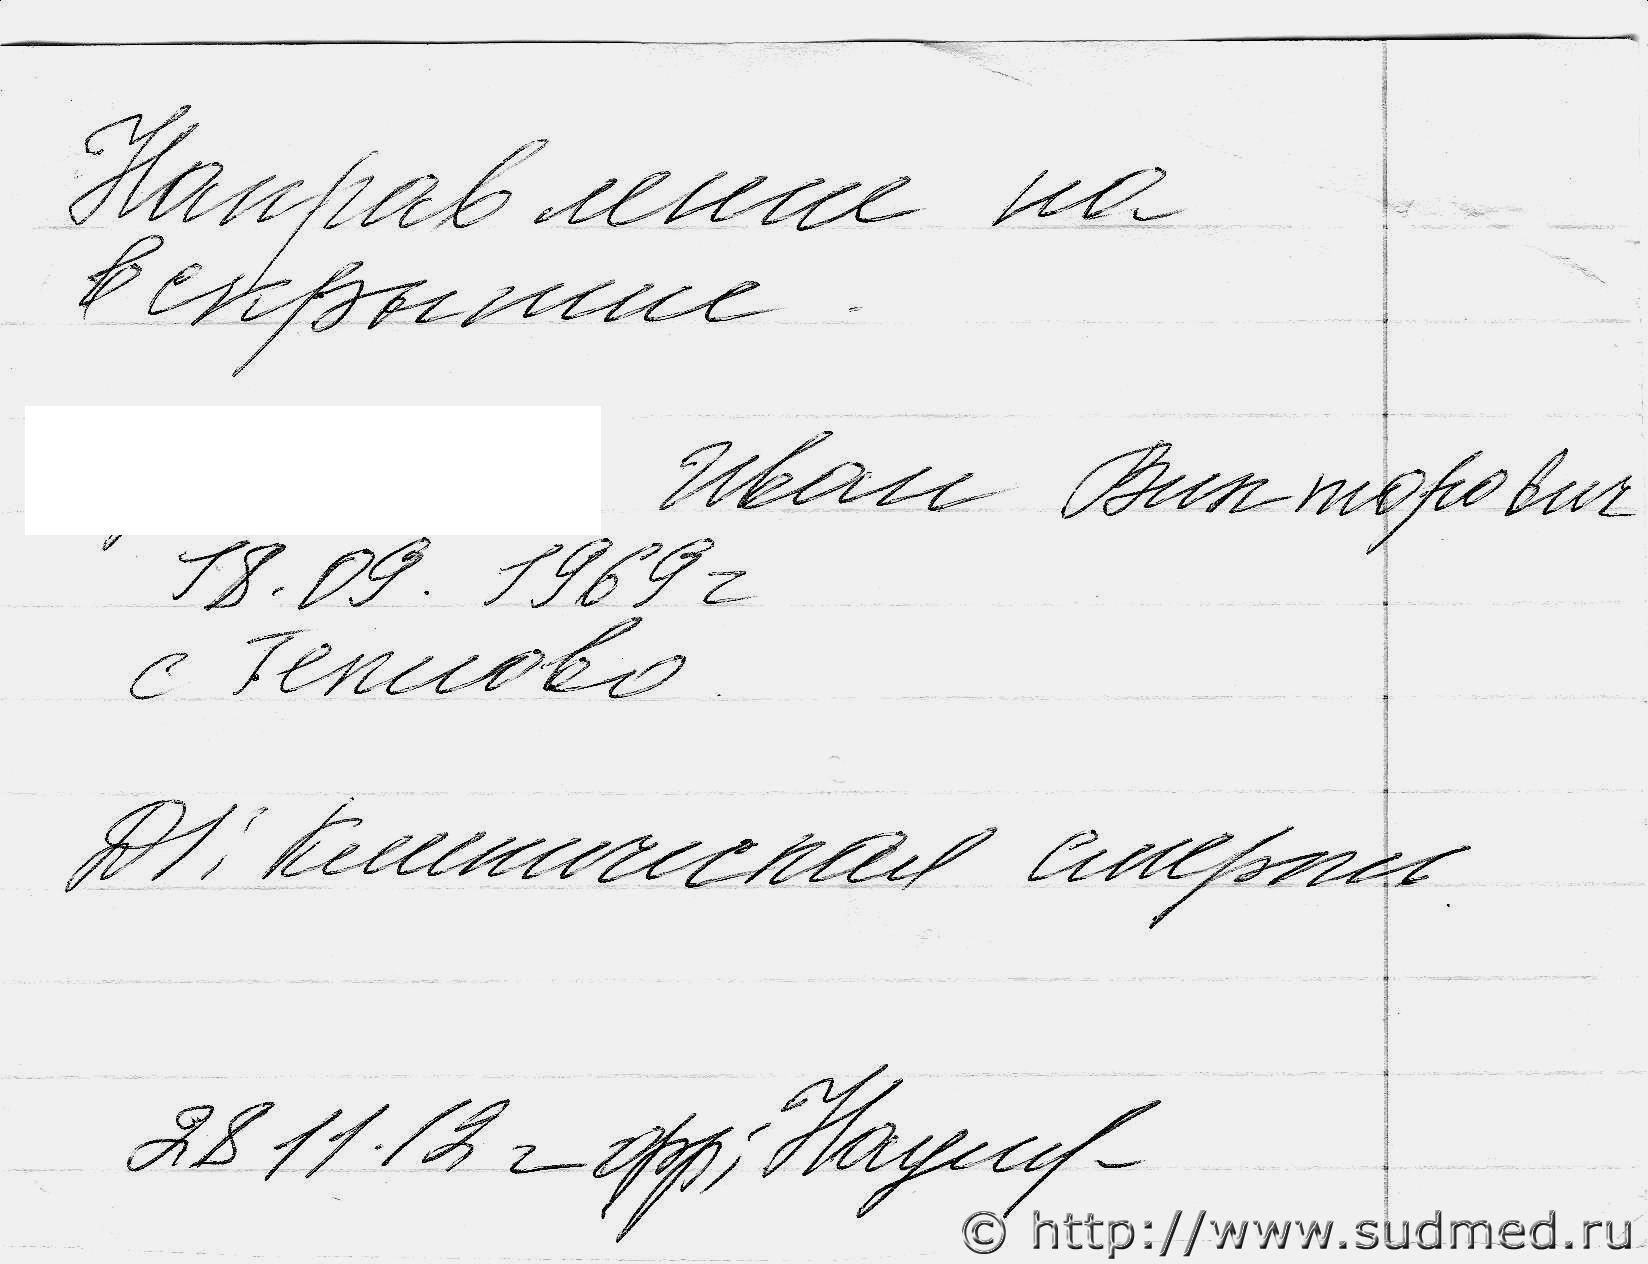 Направление на
вскрытие.
Иван Викторович
18.09.1969г
с
DS: Клиническая смерть
28 11.12г
© http://www.sudmed.ru